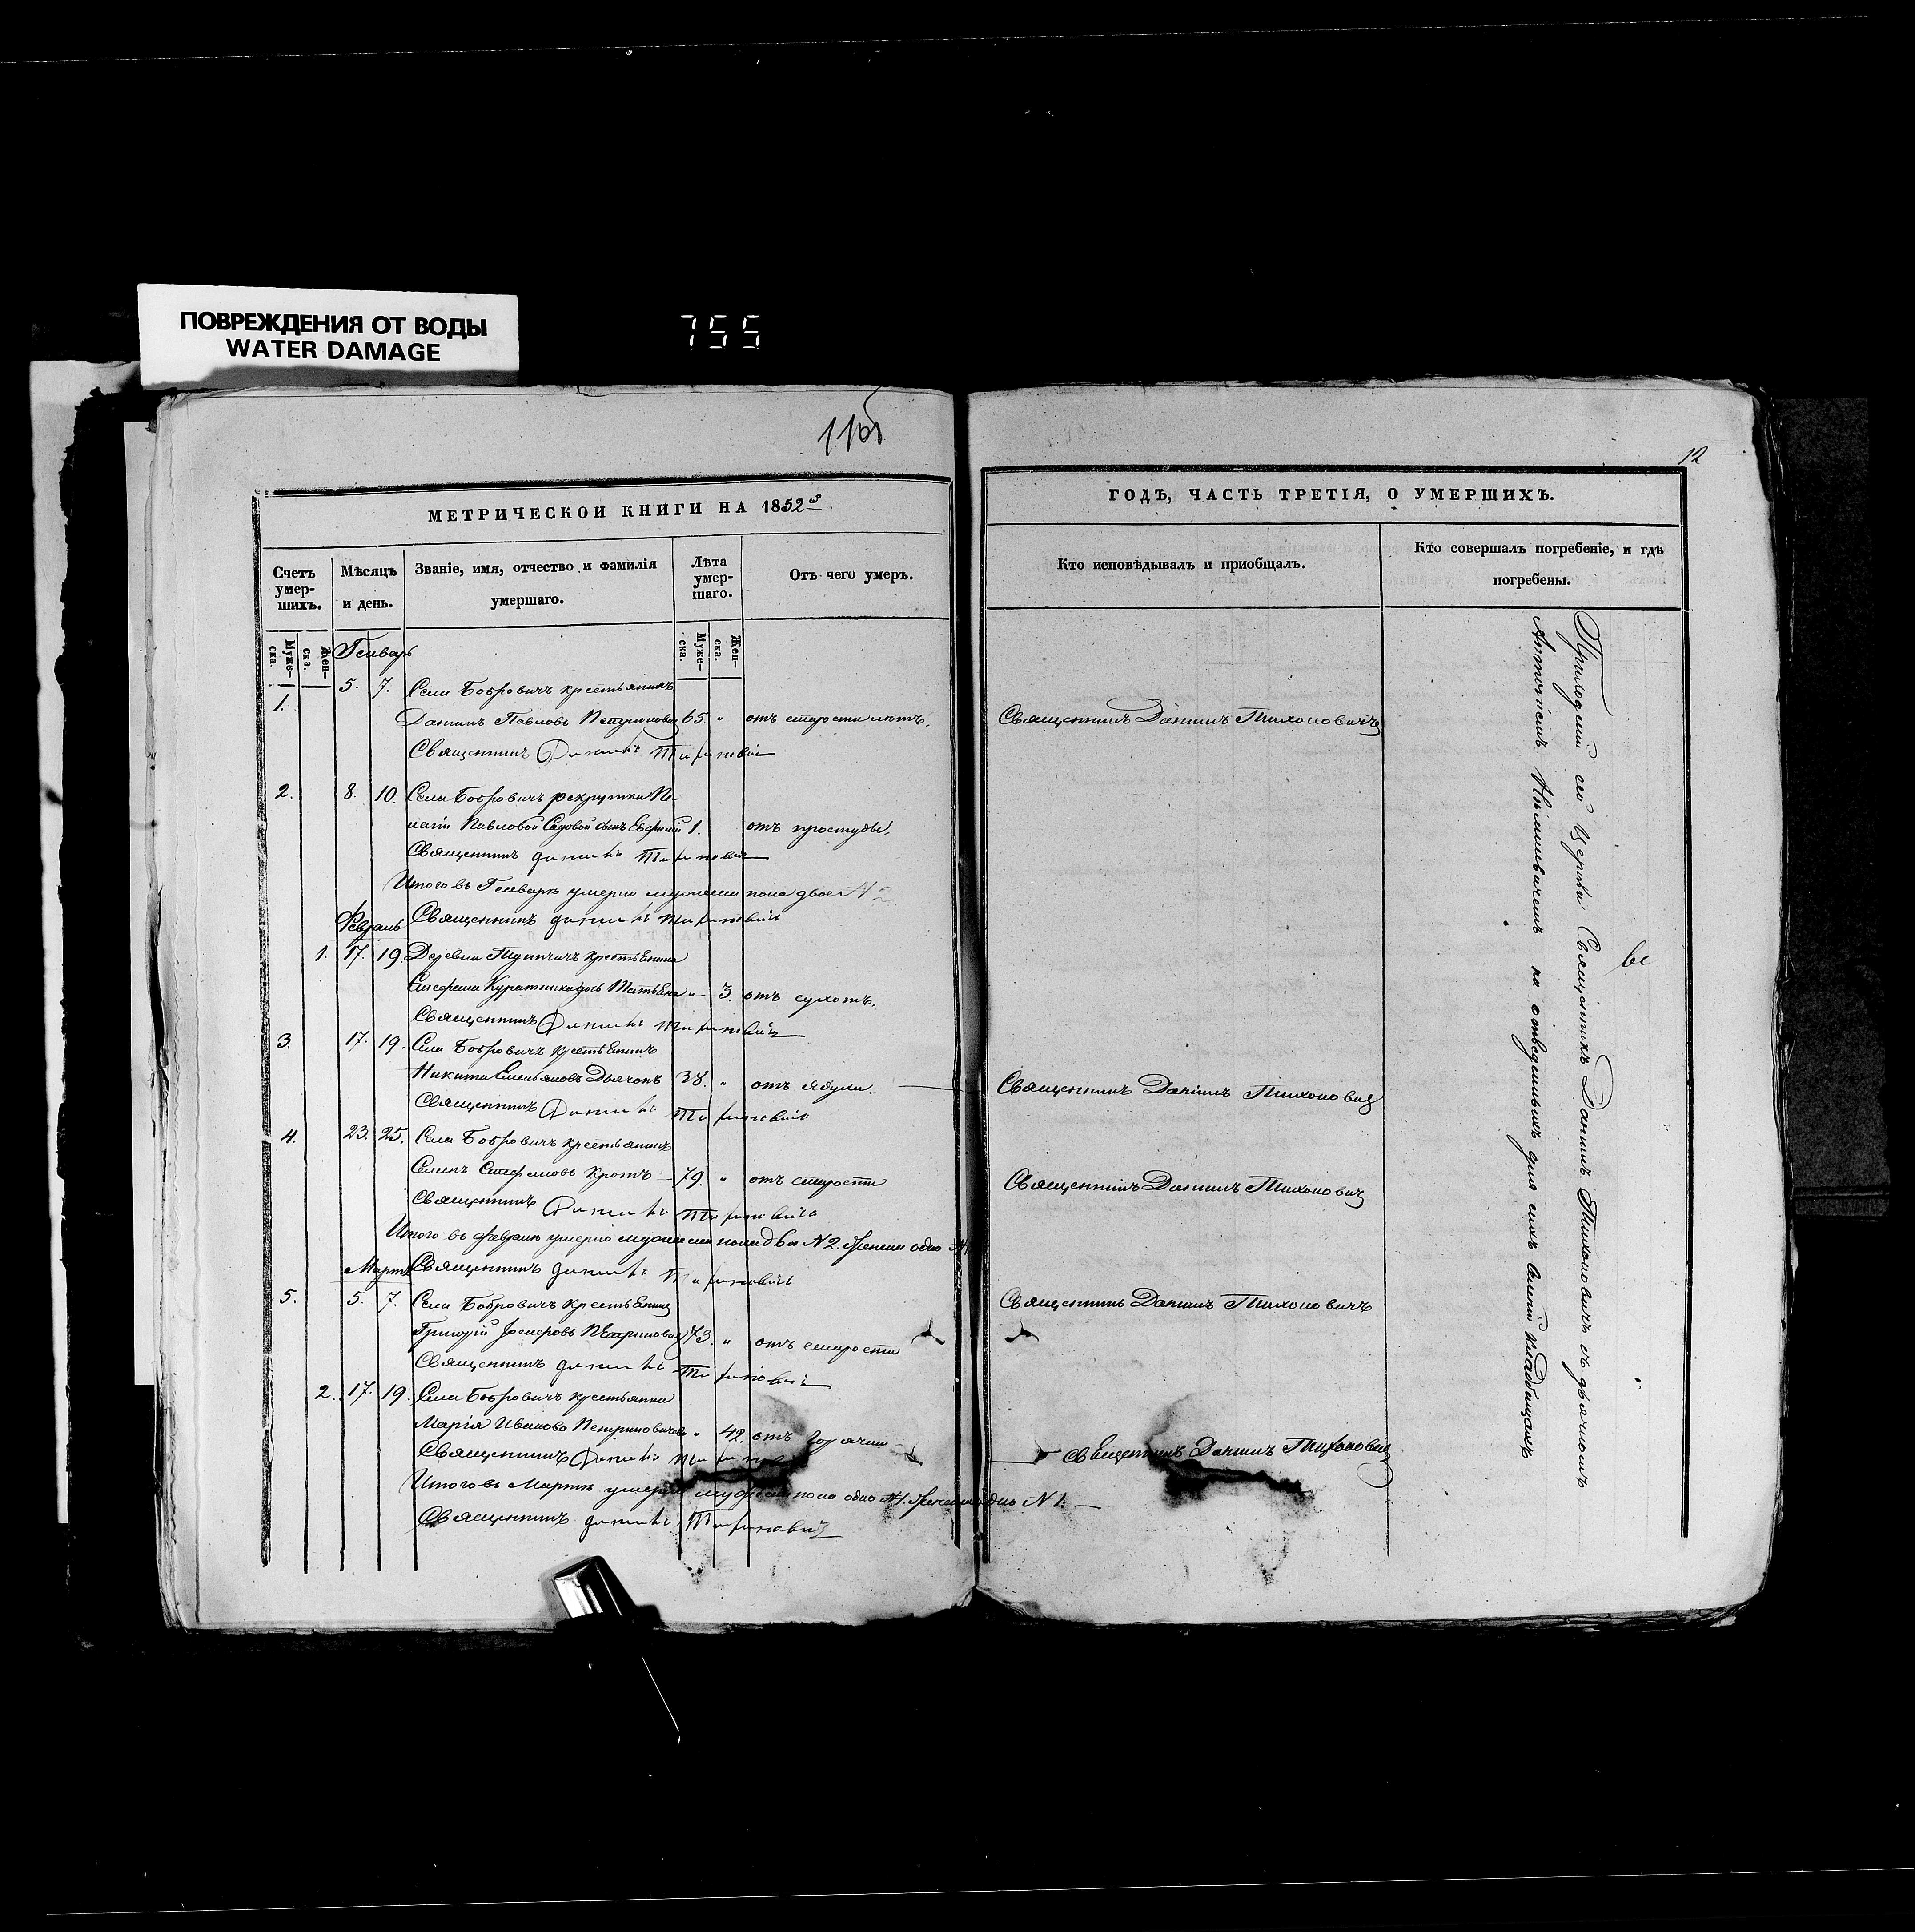 ПОВРЕЖДЕНИЯ ОТ ВОДЫ
WATER DAMAGE
755
12
МЕТРИЧЕСКОИ КНИГИ НА 1852
Счетъ умер-шихъ.
Муже-ска.
Жен-ска.
Мѣсяцъ и день.
Званіе, имя, отчество и фамилія умершаго.
Лѣта умер-шаго.
Муже-ска.
Жен-ска.
Отъ чего умеръ.
Генварь
1. 5. 7. Села Бобровичъ крестьянинъ
Даніилъ Павловъ 65. " отъ старости лѣтъ.
Священникъ Даніилъ Тихоновичъ
2. 8. 10. Села Бобровичъ рекрутки Пе-
лагіи Павловой сынъ 1. отъ простуды.
Священникъ Даніилъ Тихоновичъ
Итого въ Генварѣ умерло мужеска пола двое N 2
Февраль Священникъ Даніилъ Тихоновичъ
1. 17. 19. Деревни крестьянина
Стефана дочь Татьяна " 3. отъ сухотъ.
Священникъ Даніилъ Тихоновичъ
3. 17. 19. Села Бобровичъ крестьянинъ
Никита Емельяновъ Дьячокъ 38. " отъ ядухи.
Священникъ Даніилъ Тихоновичъ
4. 23. 25. Села Бобровичъ крестьянинъ
Семенъ Стефановъ Кротъ 79. " отъ старости
Священникъ Даніилъ Тихоновичъ
Итого въ Февралѣ умерло мужеска пола два N 2. Женска одно N 1
Мартъ Священникъ Даніилъ Тихоновичъ
5. 5. 7. Села Бобровичъ крестьянинъ
Григорій Іосифовъ Петриновичъ 73. " отъ старости
Священникъ Даніилъ Тихоновичъ
2. 17. 19. Села Бобровичъ крестьянка
Марія Иванова " 42. отъ горячки
Священникъ Даніилъ
Итого въ Мартѣ умерло мужеска пола одно N 1. Женска одно N 1.
Священникъ Даніилъ Тихоновичъ
ГОДЪ, ЧАСТЬ ТРЕТІЯ, О УМЕРШИХЪ.
Кто исповѣдывалъ и приобщалъ.
Кто совершалъ погребеніе, и гдѣ погребены.
Священникъ Даніилъ Тихоновичъ
Священникъ Даніилъ Тихоновичъ
Священникъ Даніилъ Тихоновичъ
Священникъ Даніилъ Тихоновичъ
Священникъ Даніилъ Тихоновичъ
Приходскій сей Церкви Священникъ Даніилъ Тихоновичъ съ дьячкомъ
на отведенныхъ для сихъ селеній кладбищахъ